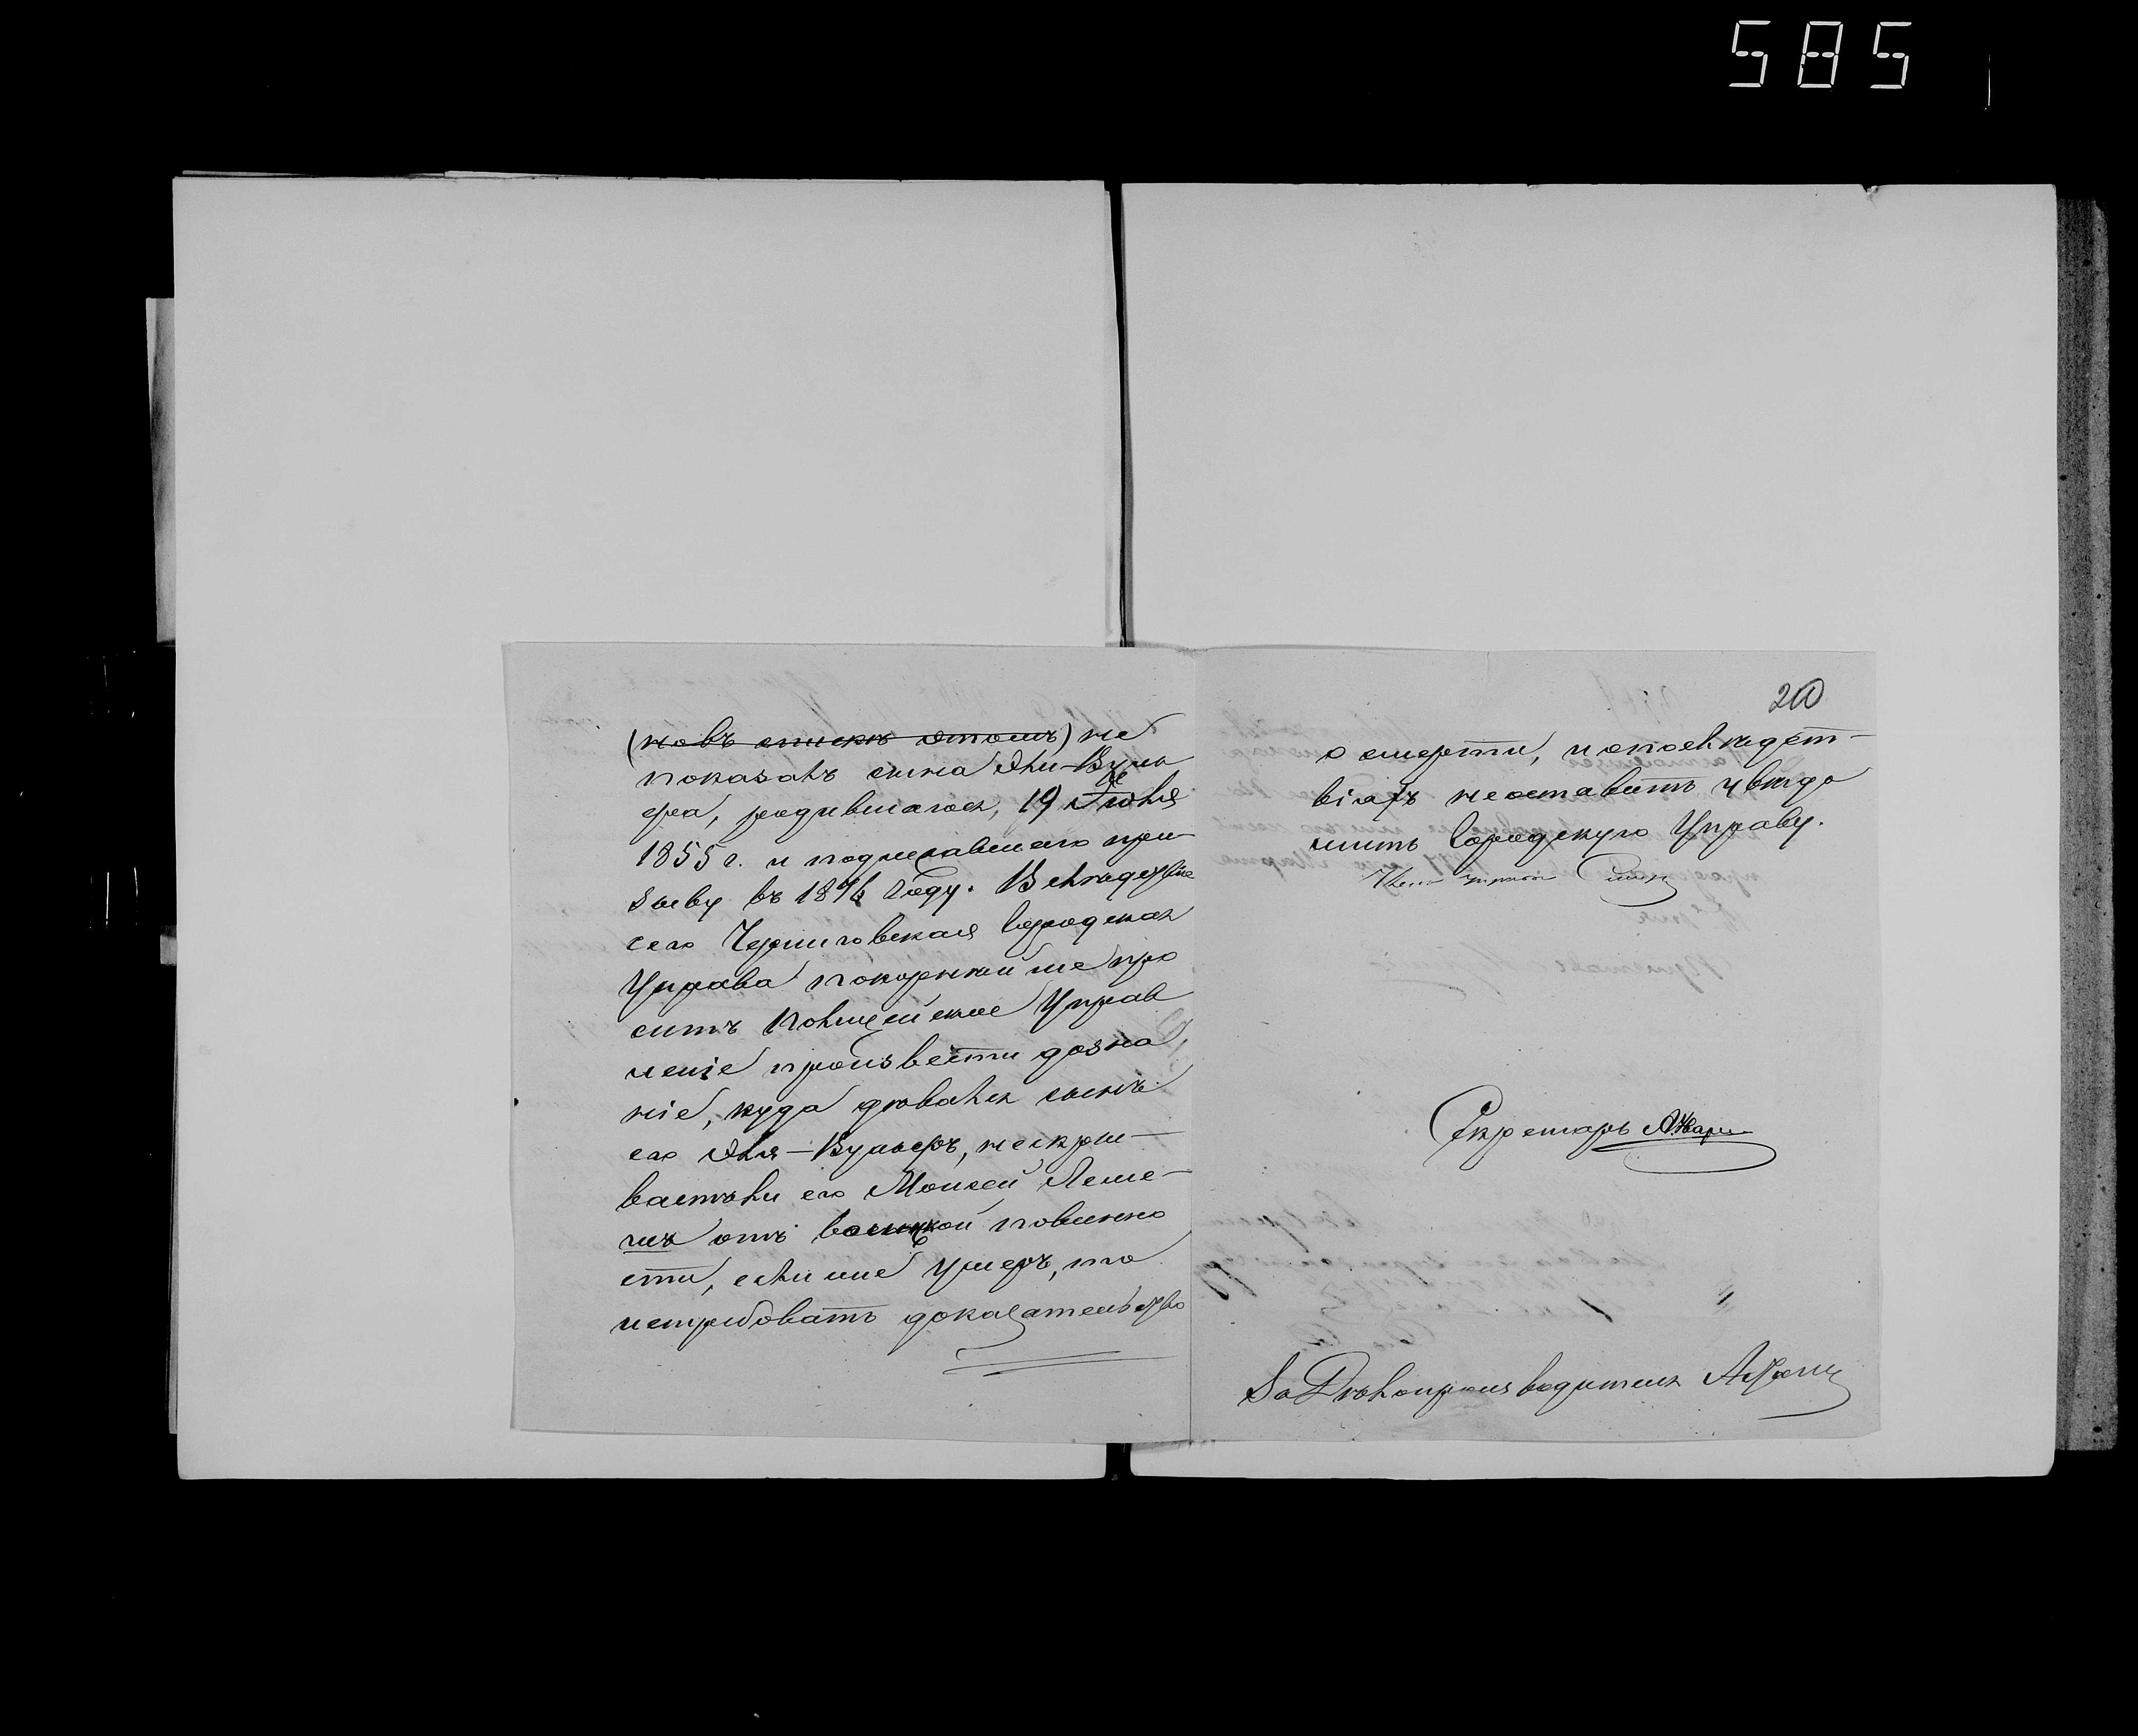 585
(но въ спискѣ этомъ) не
показалъ сына Эли-Вуль
фа, родившагося, 19 Іюля
1855 г. и подлежавшаго при
зыву въ 1876 году. Вслѣдствіе
сего Черниговская Городская
Управа покорнѣйше про
ситъ Полицейское Управ
леніе произвести дозна
ніе, куда дѣвался сынъ
его Эля-Вульфъ, не скры-
ваетъ ли его Мойсей
отъ воинской повинно
сти, если же умеръ, то
истребовать доказательство
20
о смерти, и о послѣдст-
віяхъ не оставить увѣдо
мить Городскую Управу.
Членъ управы
Секретарь
За Дѣлопроизводителя